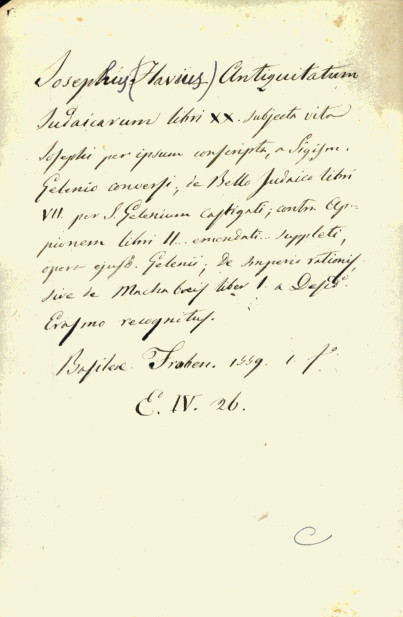 Josephus (Flavius.) Antiquitatum
Judaicarum libri XX. subjecta vita
Josephi per ipsum conscripta, a Sigism.
Gelenio conversi; de Bello Judaico libri
VII. per S. Gelenium castigati; contra Ap-
pionem libri II. emendati.. suppleti,
opera ejusd. Gelenii; de Imperio rationis,
sive de Machabaeis liber I. a Desid.
Erasmo recognitus.
Basileae Froben. 1559. 1. f°.
E. IV. 26.